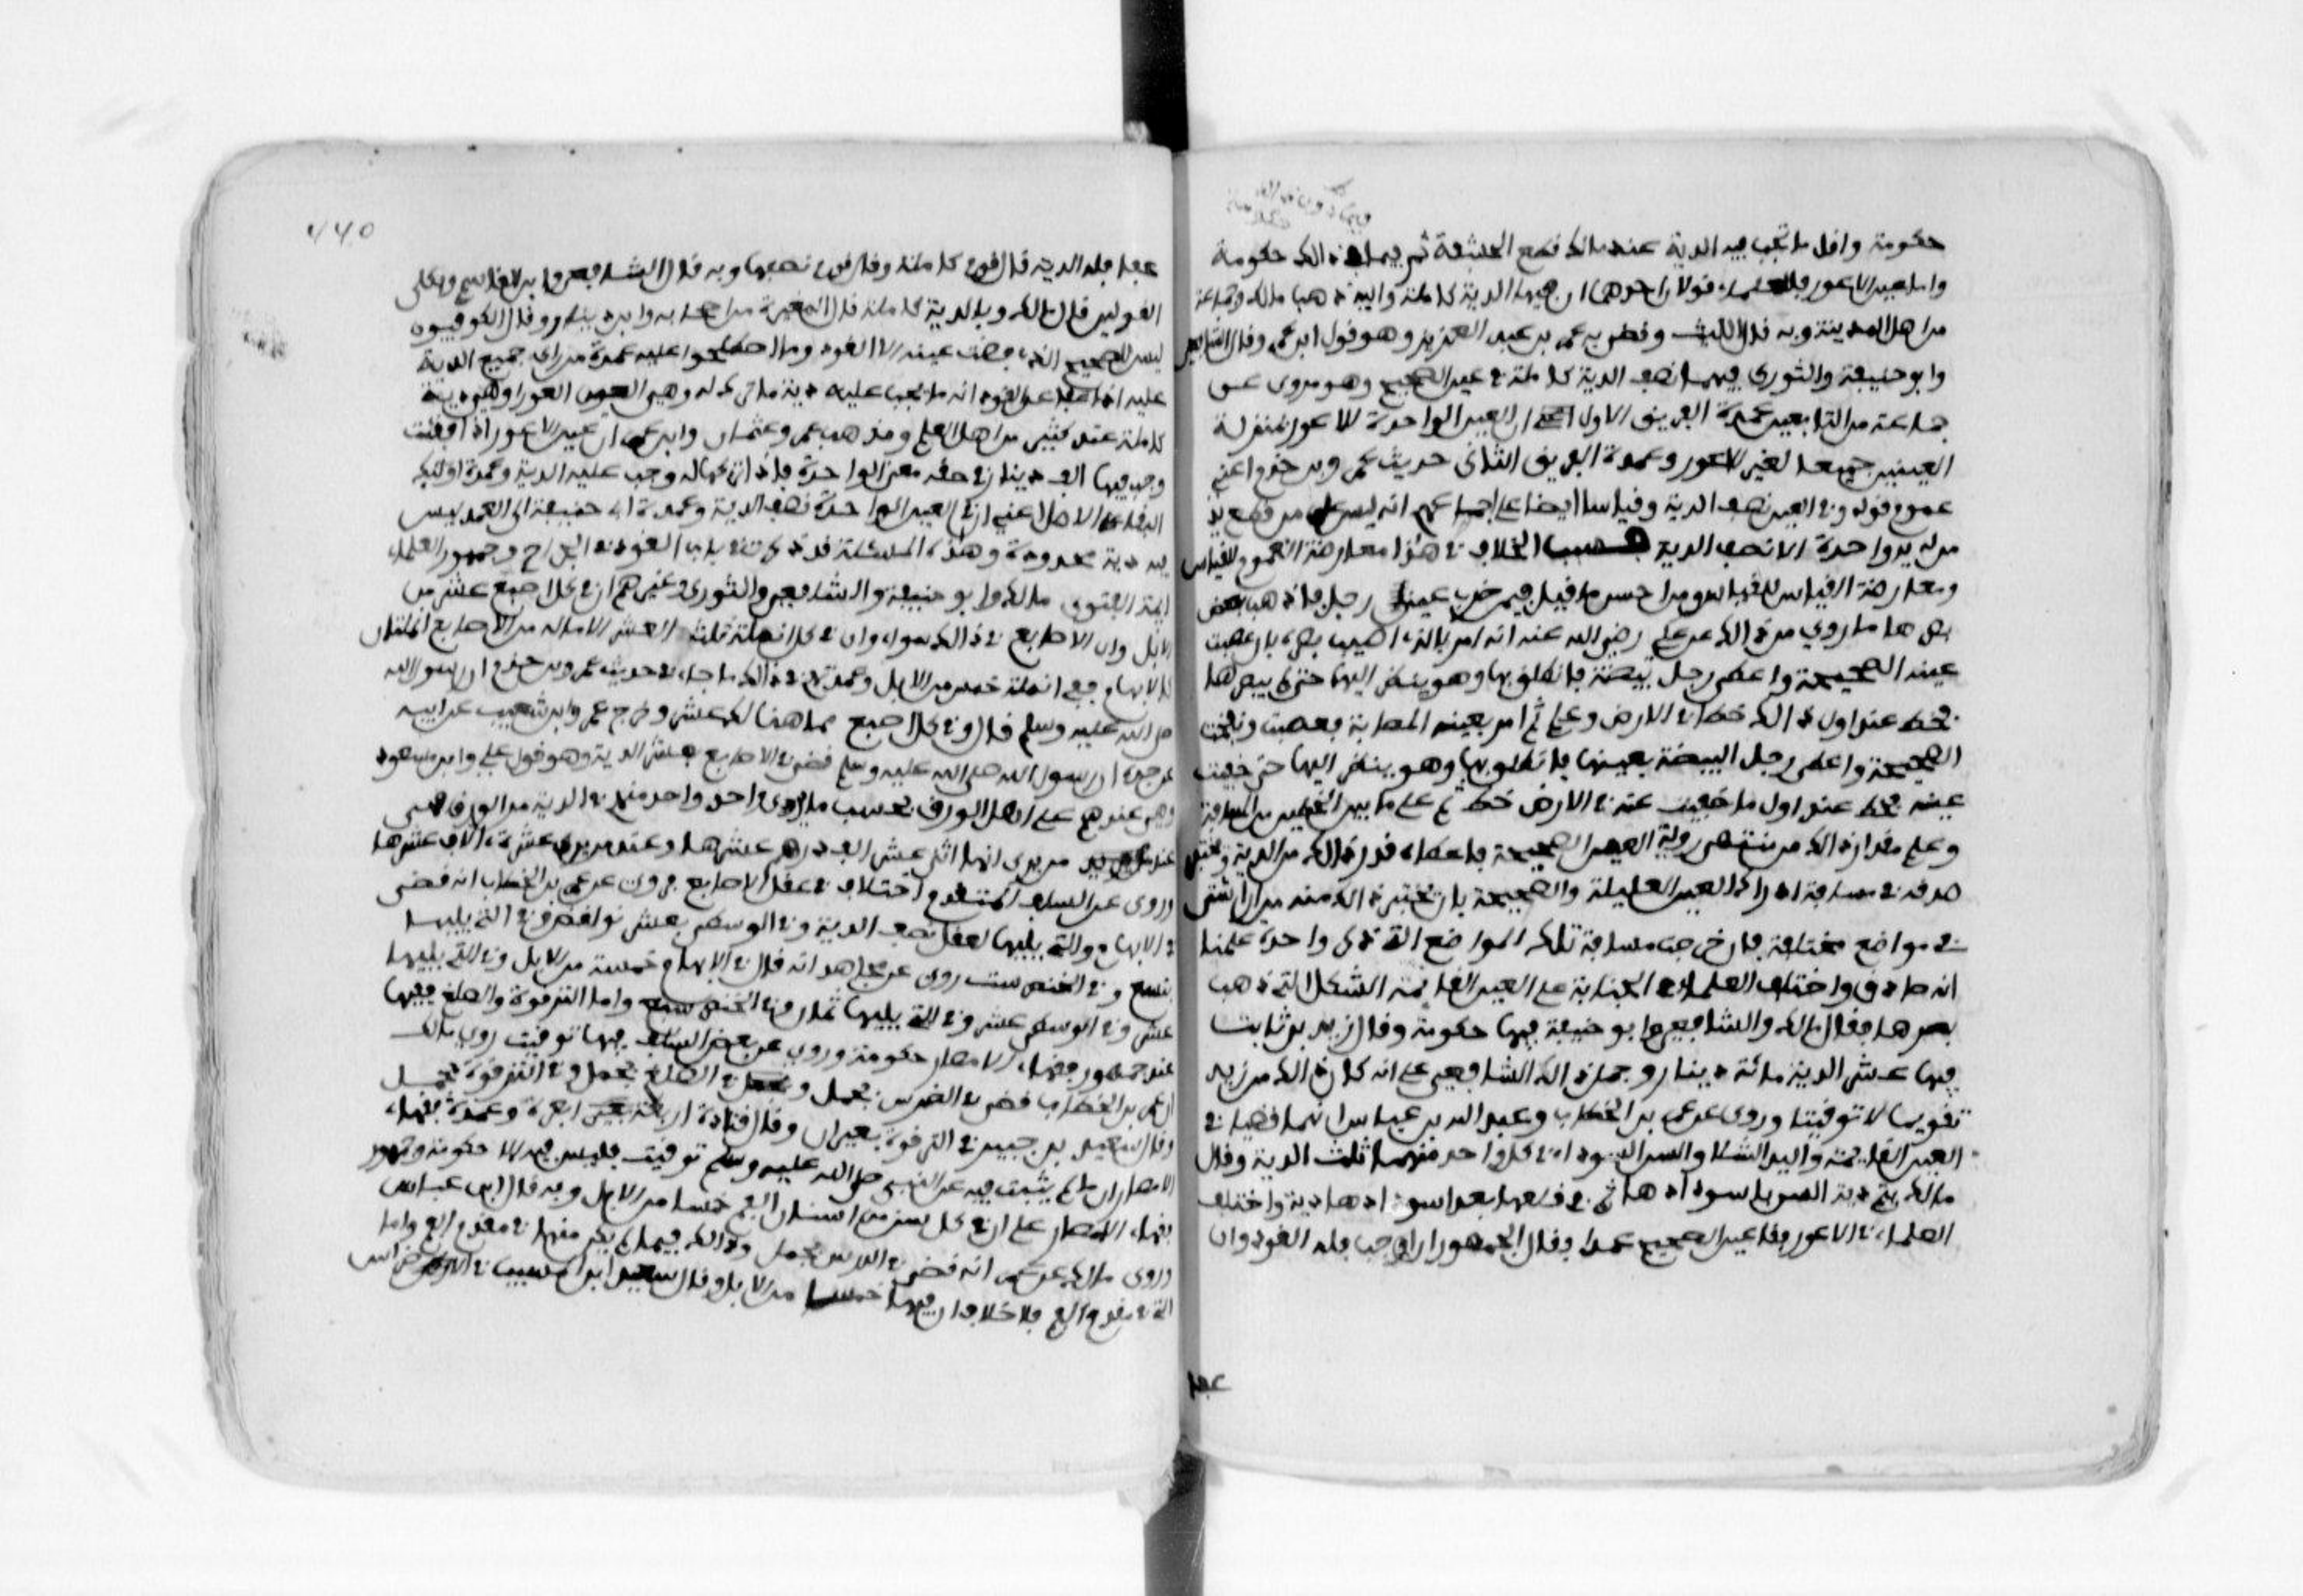 حكومة واقل ما تجب فيه الدية عند مالك قطع الحشفة ثم فيما ذلك حكومة
واما عين الاعور فللعلماء قولان احدهما ان فيها الدية كاملة واليه ذهب مالك وجماعة
من اهل المدينة وبه قال الليث وقضى به عمر بن عبد العزيز وهو قول ابن عمر وقال الشافعي
وابو حنيفة والثوري فيها نصف الدية كاملة في عين الصحيح وهو مروي عن
جماعة من التابعين عمدة الفريق الاول ان العين الواحدة للاعور بمنزلة
العينين جميعا لغير الاعور وعمدة الفريق الثاني حديث عمرو بن حزم اعني
عموم قوله وفي العين نصف الدية وقياسا ايضا على اجماعهم انه ليس على من قطع يد
من له يد واحدة الا نصف الدية فسبب الخلاف في هذا معارضة العموم للقياس
ومعارضة القياس للقياس ومن احسن ما قيل فيمن ضرب عين رجل فاذهب بعض
بصرها ما روي من ذلك عن علي رضي الله عنه انه امر بالذي اصيب بصره بان عصبت
عينه الصحيحة واعطى رجلا بيضة فانطلق بها وهو ينظر اليها حتى لم يبصرها
فخط عند اول ذلك خطا في الارض وعلم ثم امر بعينه المصابة فعصبت وفتحت
الصحيحة واعطى رجلا البيضة بعينها فانطلق بها وهو ينظر اليها حتى خفيت
عينه فخط عند اول ما خفيت عنه في الارض خطا ثم علم ما بين الخطين من المسافة
وعلم مقدار ذلك من منتهى رؤية العين الصحيحة فاعطاه قدر ذلك من الدية ويختبر
صدقه في مسافة ادراك العين العليلة والصحيحة بان يختبر ذلك منه مرارا شتى
في مواضع مختلفة فان خرجت مسافة تلك المواضع التي ذكر واحدة علمنا
انه صادق واختلف العلماء في الجناية على العين القائمة الشكل التي ذهب
بصرها فقال مالك والشافعي وابو حنيفة فيها حكومة وقال زيد بن ثابت
فيها عشر الدية مائة دينار وحمل ذلك الشافعي على انه كان ذلك من زيد
تقويما لا توقيتا وروي عن عمر بن الخطاب وعبد الله بن عباس انهما قضيا في
العين القائمة واليد الشلا والسن السوداء في كل واحد منهما ثلث الدية وقال
مالك تتم دية السن باسودادها ثم في قلعها بعد اسودادها دية واختلف
العلماء في الاعور يفقا عين الصحيح عمدا فقال الجمهور ان احب فله القود وان
عفا
عفا فله الدية قال قوم كاملة وقال قوم نصفها وبه قال الشافعي وابن القاسم وبكلى
القولين قال مالك وبالدية كاملة قال المغيرة من اصحابه وابن دينار وقال الكوفيون
ليس للصحيح الذي فقئت عينه الا القود وما اصطلحوا عليه عمدة من راى جميع الدية
عليه اذا عفا عن القود انه ما يجب عليه دية ما ترك له وهي العين العورا وهي دية
كاملة عند كثير من اهل العلم ومذهب عمر وعثمان وابن عمر ان عين الاعور اذا فقئت
وجب فيها الف دينار في حقه معنى الواحدة فاذا تركها له وجب عليه الدية وعمدة اولئك
البقاء على الاصل اعني ان في العين الواحدة نصف الدية وعمدة ابي حنيفة ان العمد ليس
فيه دية محدودة وهذه المسئلة قد ذكرت في باب القود في الجراح وجمهور العلماء
ايمة الفتوى مالك وابو حنيفة والشافعي والثوري وغيرهم ان في كل اصبع عشر من
الابل وان الاصابع في ذلك سواء وان في كل انملة ثلث العشر الا ما له من الاصابع انملتان
كالابهام ففي انملته خمس من الابل وعمدتهم في ذلك ما جاء في حديث عمرو بن حزم ان رسول الله
صلى الله عليه وسلم قال وفي كل اصبع مما هنالك عشر وخرج عمرو بن شعيب عن ابيه
عن جده ان رسول الله صلى الله عليه وسلم قضى في الاصابع بعشر الدية وهو قول علي وابن مسعود
وهي عندهم على اهل الورق بحسب ما يرى احد واحد منهم في الدية من الورق فهي
عند من يرى انها اثني عشر الف درهم عشرها وعند من يرى عشرة الاف عشرها
وروي عن السلف المتقدم اختلاف في عقل الاصابع فروي عن عمر بن الخطاب انه قضى
في الابهام والتي يليها بعقل نصف الدية وفي الوسطى بعشر فرايض وفي التي يليها
بتسع وفي الخنصر بست روي عن مجاهد انه قال في الابهام خمسة من الابل وفي التي يليها
عشر وفي الوسطى عشر وفي التي يليها ثمان وفي الخنصر سبع واما الترقوة والضلع ففيها
عند جمهور فقهاء الامصار حكومة وروي عن بعض السلف فيها توقيت روى مالك
ان عمر بن الخطاب قضى في الضرس بجمل وفي الضلع بجمل وفي الترقوة بجمل
وقال سعيد بن جبير في الترقوة بعيران وقال قتادة اربعة ابعرة وعمدة فقهاء
الامصار ان ما لم يثبت فيه عن النبي صلى الله عليه وسلم توقيت فليس فيه الا حكومة وجمهور
فقهاء الامصار على ان في كل سن من اسنان الفم خمسا من الابل وبه قال ابن عباس
وروى مالك عن عمر انه قضى في الضرس بجمل وذلك فيما لم يكن منها في مقدم الفم واما
التي في مقدم الفم فلا خلاف ان فيها خمسا من الابل وقال سعيد ابن المسيب في الاضراس